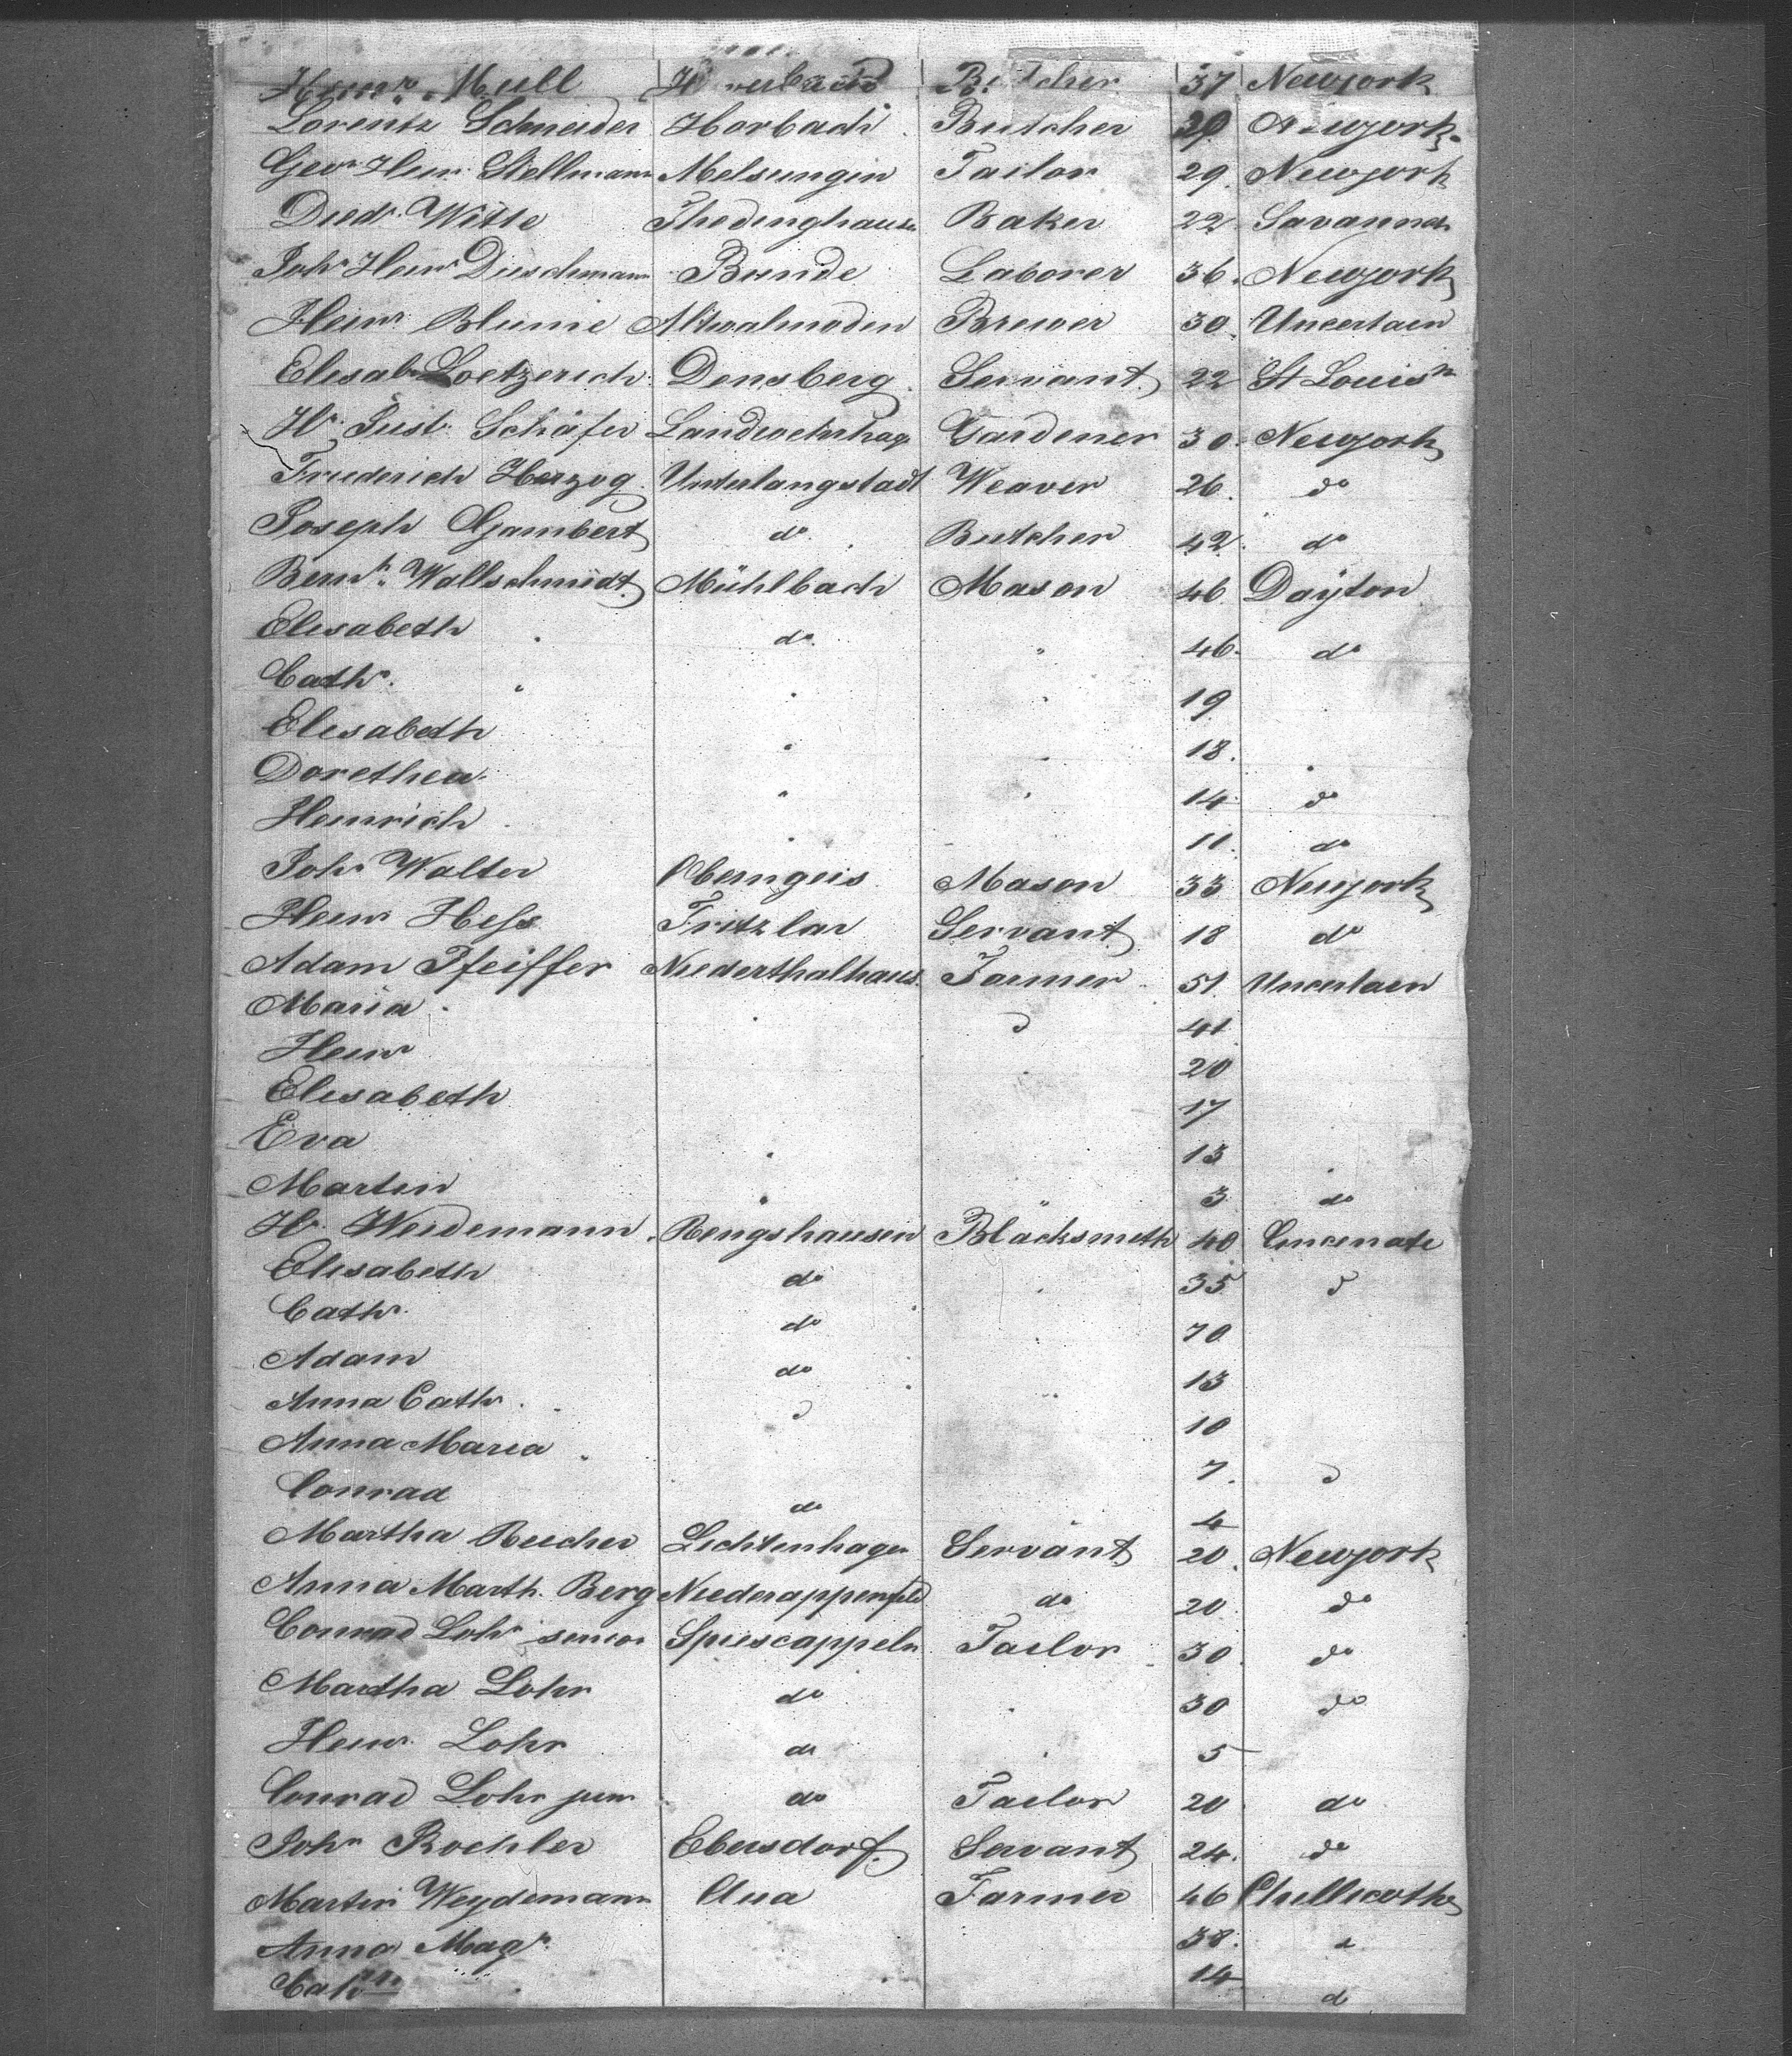 Heinr. Mull Butcher 37 Newyork
Lorentz Schneider Horbach Butcher 29 Newyork
Geo. Heinr. Stellmann Melsungin Tailor 29 Newyork
Died. Witte Thedinghausn Baker 22 Savannah
Joh. Heinr Dieschmann Bunde Laborer 36 Newyork
Heinr Blume Altwalmoden Brewer 30 Uncertain
Elisab. Loetzerich Densberg Servant 22 St Louis
Hr. Just. Schäfer Landwehrhagn Gardener 30 Newyork
Friederich Herzog Unterlangstadt Weaver 26 do
Joseph Gambert do Butcher 42 do
Bernh. Wallschmidt Mühlbach Mason 46 Dayton
Elisabeth " do " 46 do
Cath. " " " 19
Elisabeth " " 18 "
Dorethea " " 14 do
Heinrich " 11 do
Joh. Walter Oberngeis Mason 33 Newyork
Heinr Hess Fritzlar Servant 18 do
Adam Pfeiffer Niederthalhaus. Farmer 51 Uncertain
Maria " " d 41
Heinr 20
Elisabeth 17
Eva " 13 "
Martin " 3 do
Hr. Weidemann Rengshausen Blacksmith 40 Cincinati
Elisabeth do " 35 d
Cath. do 70
Adam do 13
Anna Cath. d " 10
Anna Maria " 7 d
Conrad do " 4
Martha Reicher Lichtenhagen Servant 20 Newyork
Anna Marth. Berg Niederappenfeld do 20 do
Conrad Lohr senior Spiescappeln Tailor 30 do
Martha Lohr do " 30 do
Heinr. Lohr do " 5
Conrad Lohr jun do Tailor 20 do
Joh. Koehler Ebersdorf Servant 24 do
Martin Weydemann Aua Farmer 46 Chillicothe
Anna Mag. 38 d
Cath. 14 d